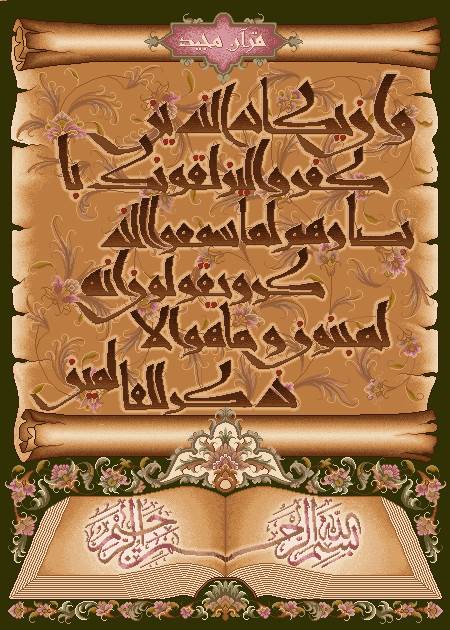 قرآن مجید
وان یکاد الذین
کفروا لیزلقونک با
بصارهم لما سمعوا الذ
کر و یقولون انه
لمجنون و ما هو الا
ذکر للعالمین
بسم الله الرحمن الرحیم